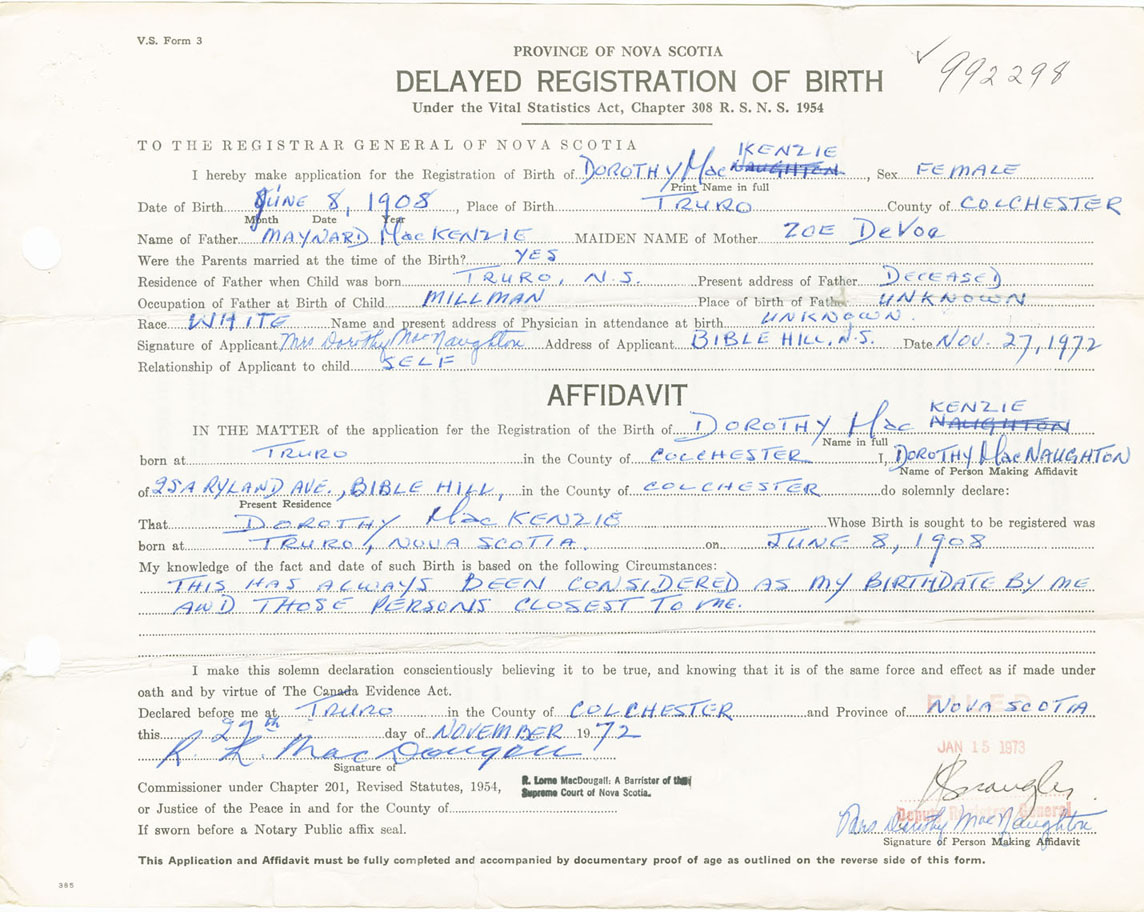 V.S. Form 3
PROVINCE OF NOVA SCOTIA
992298
DELAYED REGISTRATION OF BIRTH
Under the Vital Statistics Act, Chapter 308 R. S. N. S. 1954
TO THE REGISTRAR GENERAL OF NOVA SCOTIA
KENZIE
I hereby make application for the Registration of Birth of DOROTHY Mac NAUGHTON, Sex FEMALE
Print Name in full
Date of Birth JUNE 8, 1908, Place of Birth TRURO County of COLCHESTER
Month Date Year
Name of Father MAYNARD MacKENZIE MAIDEN NAME of Mother ZOE DeVoe
Were the Parents married at the time of the Birth? YES
Residence of Father when Child was born TRURO, N.S. Present address of Father DECEASED
Occupation of Father at Birth of Child MILLMAN Place of birth of Father UNKNOWN
Race WHITE Name and present address of Physician in attendance at birth UNKNOWN.
Signature of Applicant Mrs Dorothy MacNaughton Address of Applicant BIBLE HILL, N.S. Date NOV. 27, 1972
Relationship of Applicant to child SELF
AFFIDAVIT
KENZIE
IN THE MATTER of the application for the Registration of the Birth of DOROTHY Mac NAUGHTON
Name in full
born at TRURO in the County of COLCHESTER I, DOROTHY MacNAUGHTON
Name of Person Making Affidavit
of 25A RYLAND AVE., BIBLE HILL, in the County of COLCHESTER do solemnly declare:
Present Residence
That DOROTHY MacKENZIE Whose Birth is sought to be registered was
born at TRURO, NOVA SCOTIA. on JUNE 8, 1908
My knowledge of the fact and date of such Birth is based on the following Circumstances:
THIS HAS ALWAYS BEEN CONSIDERED AS MY BIRTHDATE BY ME
AND THOSE PERSONS CLOSEST TO ME.
I make this solemn declaration conscientiously believing it to be true, and knowing that it is of the same force and effect as if made under
oath and by virtue of The Canada Evidence Act.
FILED
Declared before me at TRURO in the County of COLCHESTER and Province of NOVA SCOTIA
this 27th day of NOVEMBER 1972
JAN 15 1973
R L MacDougall
Signature of
Commissioner under Chapter 201, Revised Statutes, 1954,
R. Lorne MacDougall: A Barrister of the
Supreme Court of Nova Scotia.
or Justice of the Peace in and for the County of
Deputy Registrar General
If sworn before a Notary Public affix seal.
Mrs Dorothy MacNaughton
Signature of Person Making Affidavit
This Application and Affidavit must be fully completed and accompanied by documentary proof of age as outlined on the reverse side of this form.
385